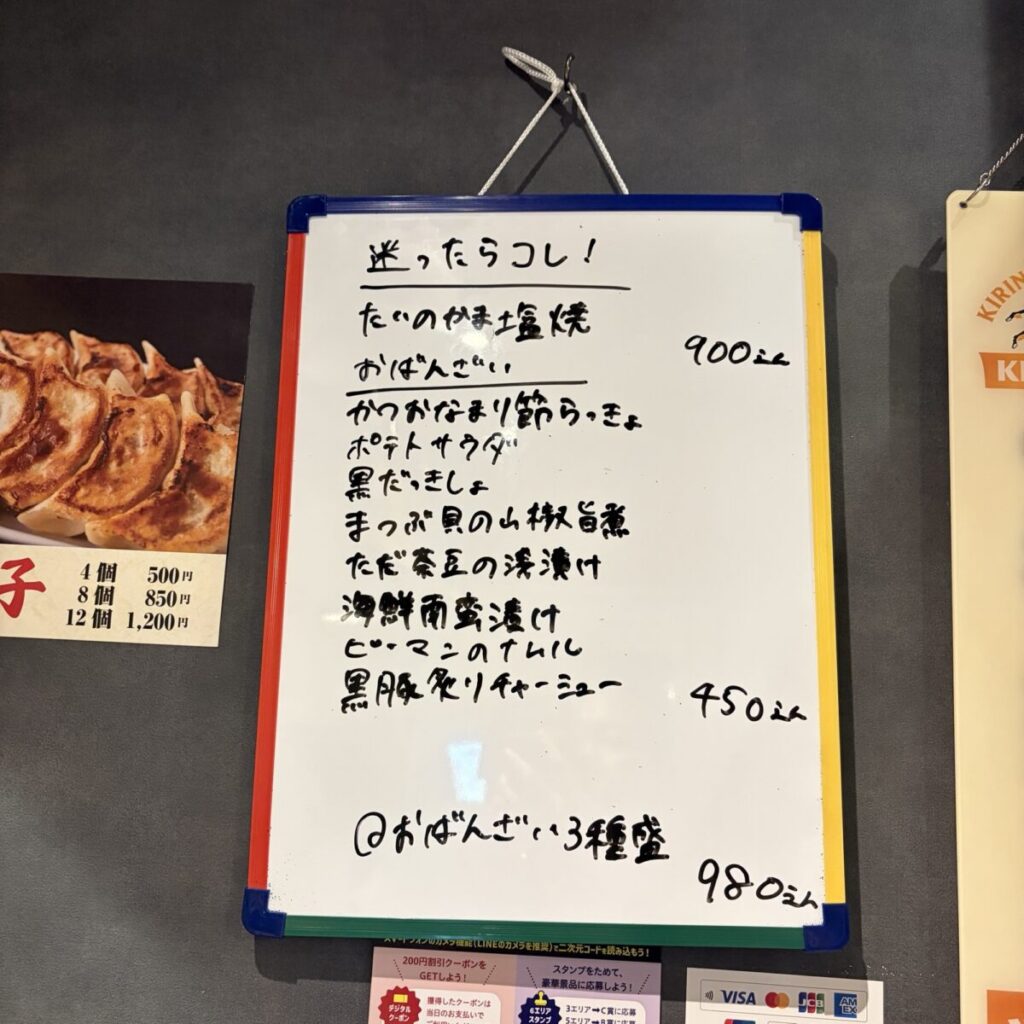 迷ったらコレ!
たいのかま塩焼
900えん
おばんざい
かつおなまり節らっきょ
ポテトサラダ
黒だっきしょ
まつぶ貝の山椒旨煮
ただ茶豆の浅漬け
海鮮南蛮漬け
ピーマンのナムル
黒豚炙りチャーシュー
450えん
@おばんざい3種盛
980えん
子
4個 500円
8個 850円
12個 1,200円
KIRIN
スマートフォンのカメラ機能(LINEのカメラを推奨)で二次元コードを読み込もう!
200円割引クーポンを
GETしよう!
デジタル
クーポン
獲得したクーポンは
当日のお支払いで
スタンプをためて、
豪華景品に応募しよう!
6エリア
スタンプ
3エリア→C賞に応募
5エリア→B賞に応募
VISA
JCB
AM
EX